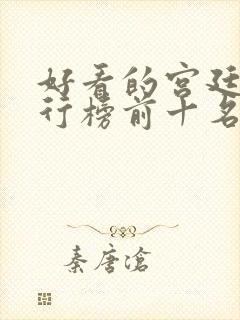 好看的宫廷
行榜前十名
秦唐沧